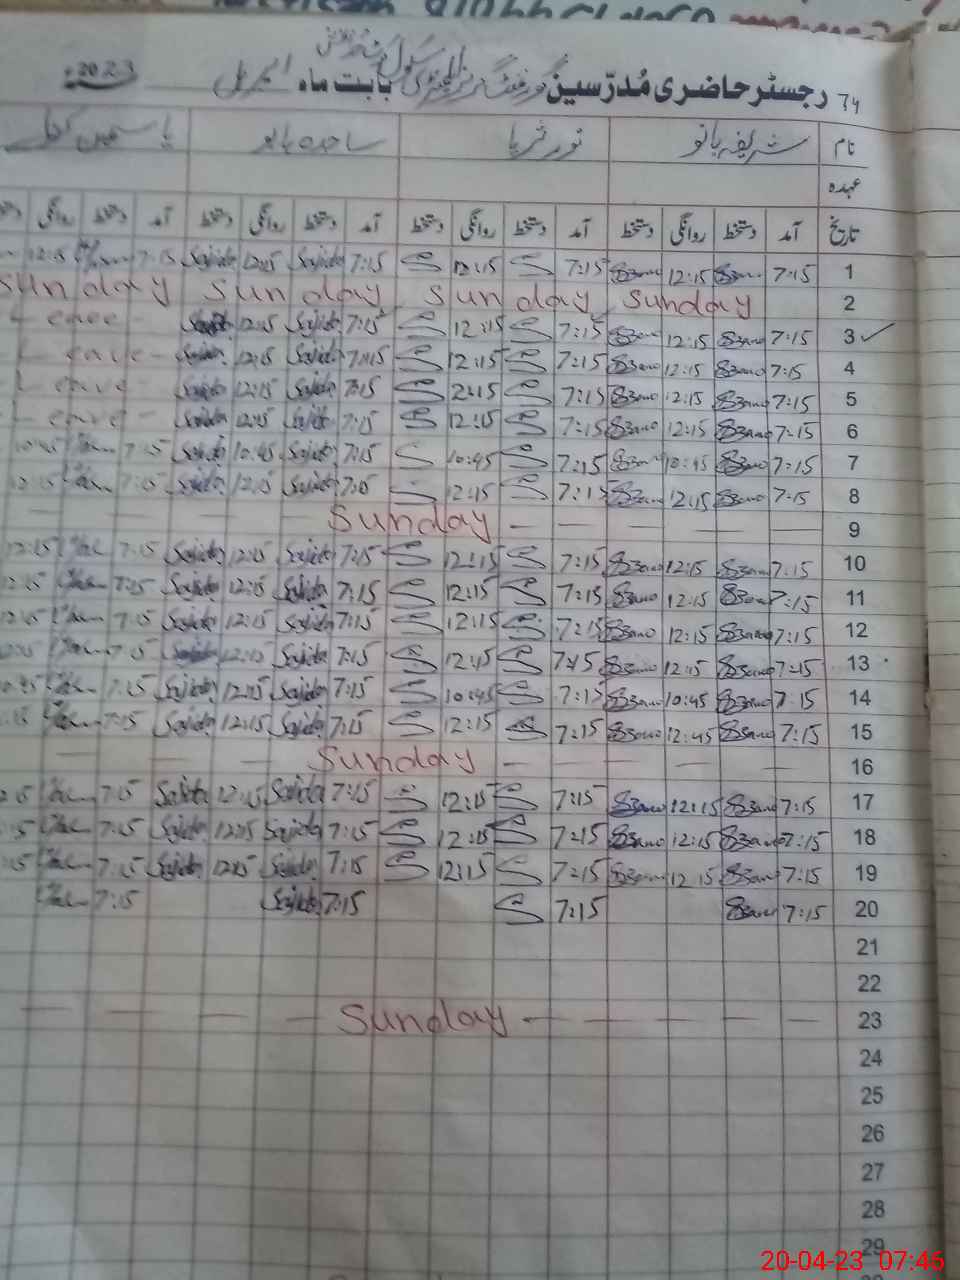 74 رجسٹر حاضری مُدرّسین گورنمنٹ گرلز ایلیمنٹری سکول بابت ماہ اپریل 2023ء
نام شریفہ بانو نور ثریا ساجدہ بانو یاسمین
عہدہ
تاریخ آمد دستخط روانگی دستخط آمد دستخط روانگی دستخط آمد دستخط روانگی دستخط آمد دستخط روانگی
1 7:15 SBano 12:15 SBano 7:15 12:15 7:15 Sajida 12:15 Sajida 7:15 12:15
2 Sunday Sunday Sunday Sunday
3 7:15 SBano 12:15 SBano 7:15 12:15 7:15 Sajida 12:15 Leave
4 7:15 SBano 12:15 SBano 7:15 12:15 7:15 Sajida 12:15 Sajida Leave
5 7:15 SBano 12:15 SBano 7:15 12:15 7:15 Sajida 12:15 Sajida Leave
6 7:15 SBano 12:15 SBano 7:15 12:15 7:15 Sajida 12:15 Sajida Leave
7 7:15 SBano 10:45 SBano 7:15 10:45 7:15 Sajida 10:45 Sajida 7:15 10:45
8 7:15 SBano 12:15 SBano 7:15 12:15 7:15 Sajida 12:15 Sajida 7:15 12:15
9 Sunday
10 7:15 SBano 12:15 SBano 7:15 12:15 7:15 Sajida 12:15 Sajida 7:15 12:15
11 7:15 SBano 12:15 SBano 7:15 12:15 7:15 Sajida 12:15 Sajida 7:15 12:15
12 7:15 SBano 12:15 SBano 7:15 12:15 7:15 Sajida 12:15 Sajida 7:15 12:15
13 7:15 SBano 12:15 SBano 7:15 12:15 7:15 Sajida 12:15 Sajida 7:15
14 7:15 SBano 10:45 SBano 7:15 10:45 7:15 Sajida 12:15 Sajida 7:15 10:45
15 7:15 SBano 12:45 SBano 7:15 12:15 7:15 Sajida 12:15 Sajida 7:15
16 Sunday
17 7:15 SBano 12:15 SBano 7:15 12:15 7:15 Sajida 12:15 Sajida 7:15
18 7:15 SBano 12:15 SBano 7:15 12:15 7:15 Sajida 12:15 Sajida 7:15
19 7:15 SBano 12:15 SBano 7:15 12:15 7:15 Sajida 12:15 Sajida 7:15
20 7:15 SBano 7:15 7:15 Sajida 7:15
21
22
23 Sunday
24
25
26
27
28
29
20-04-23 07:46